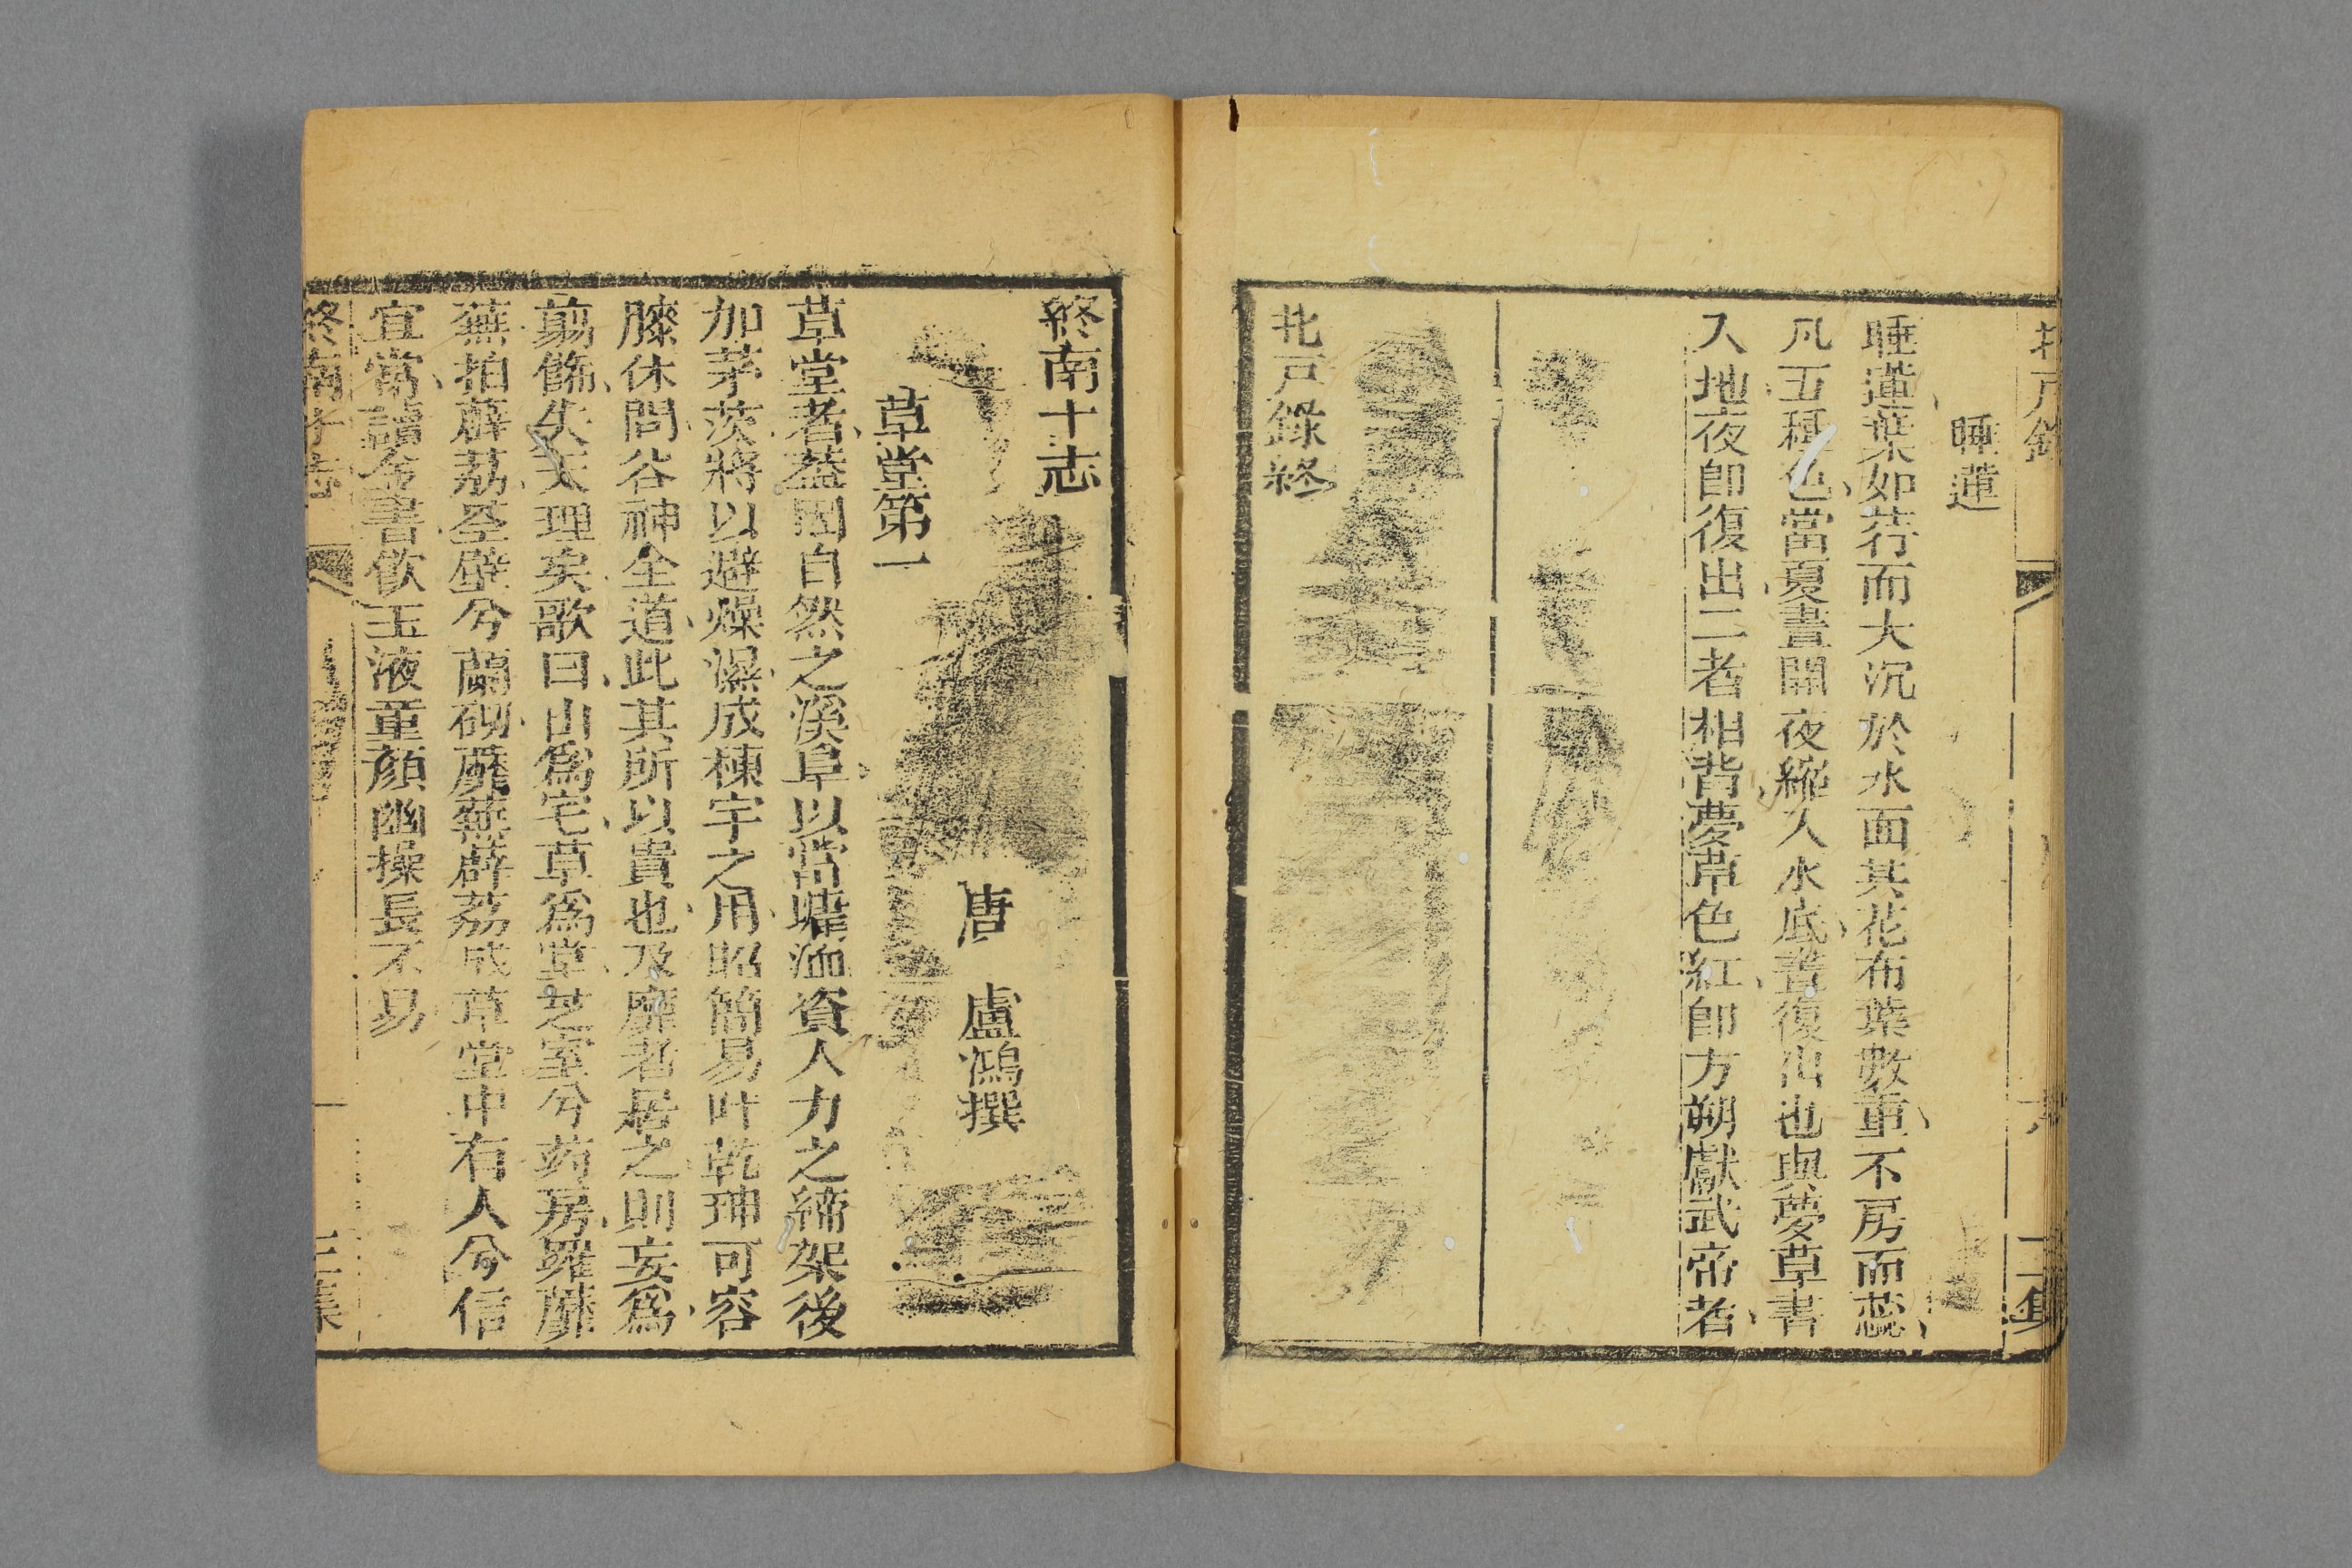 睡蓮
睡蓮葉如荇而大沉於水面其花布葉數重不房而蕊
凡五種色當夏晝開夜縮入水底晝復出也與夢草晝
入地夜即復出二者相背夢草色紅即方朔獻武帝者
北戸錄終
終南十志
唐 盧鴻撰
草堂第一
草堂者蓋因自然之溪阜以當墉洫資人力之締架後
加茅茨將以避燥濕成棟宇之用昭簡易叶乾坤可容
膝休閒谷神全道此其所以貴也及靡者居之則妄爲
翦餙失天理矣歌曰山爲宅草爲堂芝室兮葯房羅蘼
蕪拍薜荔荃壁兮蘭砌蘼蕪薜荔成草堂中有人兮信
宜常讀金書飲玉液童顔幽操長不易